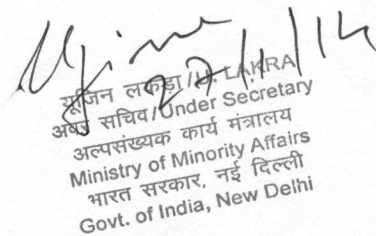 27/1/14
यूजिन लकड़ा / U. LAKRA
अवर सचिव/Under Secretary
अल्पसंख्यक कार्य मंत्रालय
Ministry of Minority Affairs
भारत सरकार, नई दिल्ली
Govt. of India, New Delhi